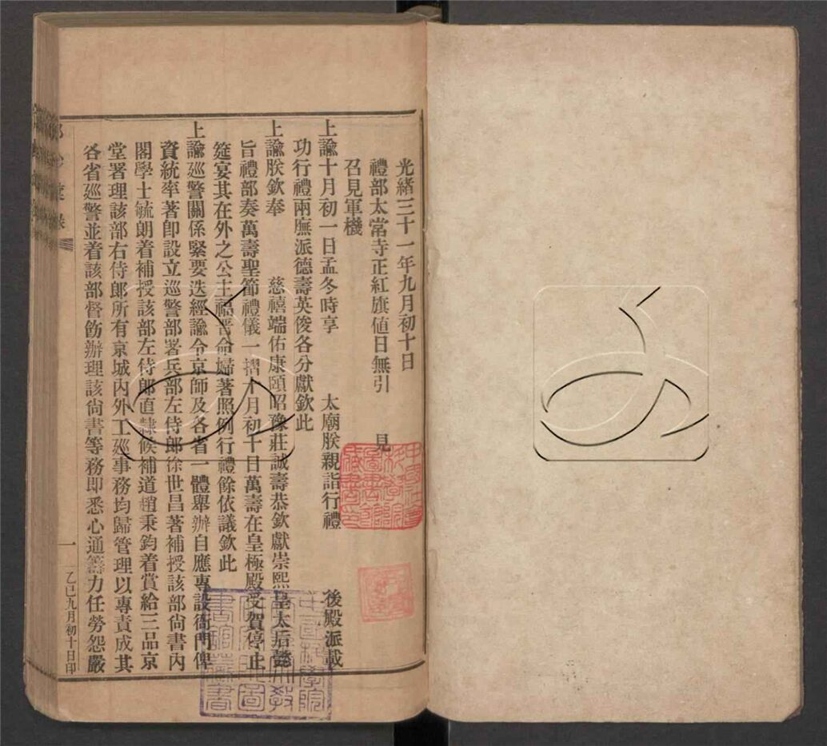 光緒三十一年九月初十日
禮部太常寺正紅旗值日無引 見
召見軍機
上諭十月初一日孟冬時享 太廟朕親詣行禮 後殿派載
功行禮兩廡派德壽英俊各分獻欽此
上諭朕欽奉 慈禧端佑康頤昭豫莊誠壽恭欽獻崇熙皇太后懿
旨禮部奏萬壽聖節禮儀一摺十月初十日萬壽在皇極殿受賀停止
筵宴其在外之公主福晉命婦著照例行禮餘依議欽此
上諭巡警關係緊要迭經諭令京師及各省一體舉辦自應專設衙門俾
資統率著卽設立巡警部署兵部左侍郎徐世昌著補授該部尙書內
閣學士毓朗着補授該部左侍郎直隸候補道趙秉鈞着賞給三品京
堂署理該部右侍郎所有京城內外工巡事務均歸管理以專責成其
各省巡警並着該部督飭辦理該尙書等務即悉心通籌力任勞怨嚴
一 乙巳九月初十日印